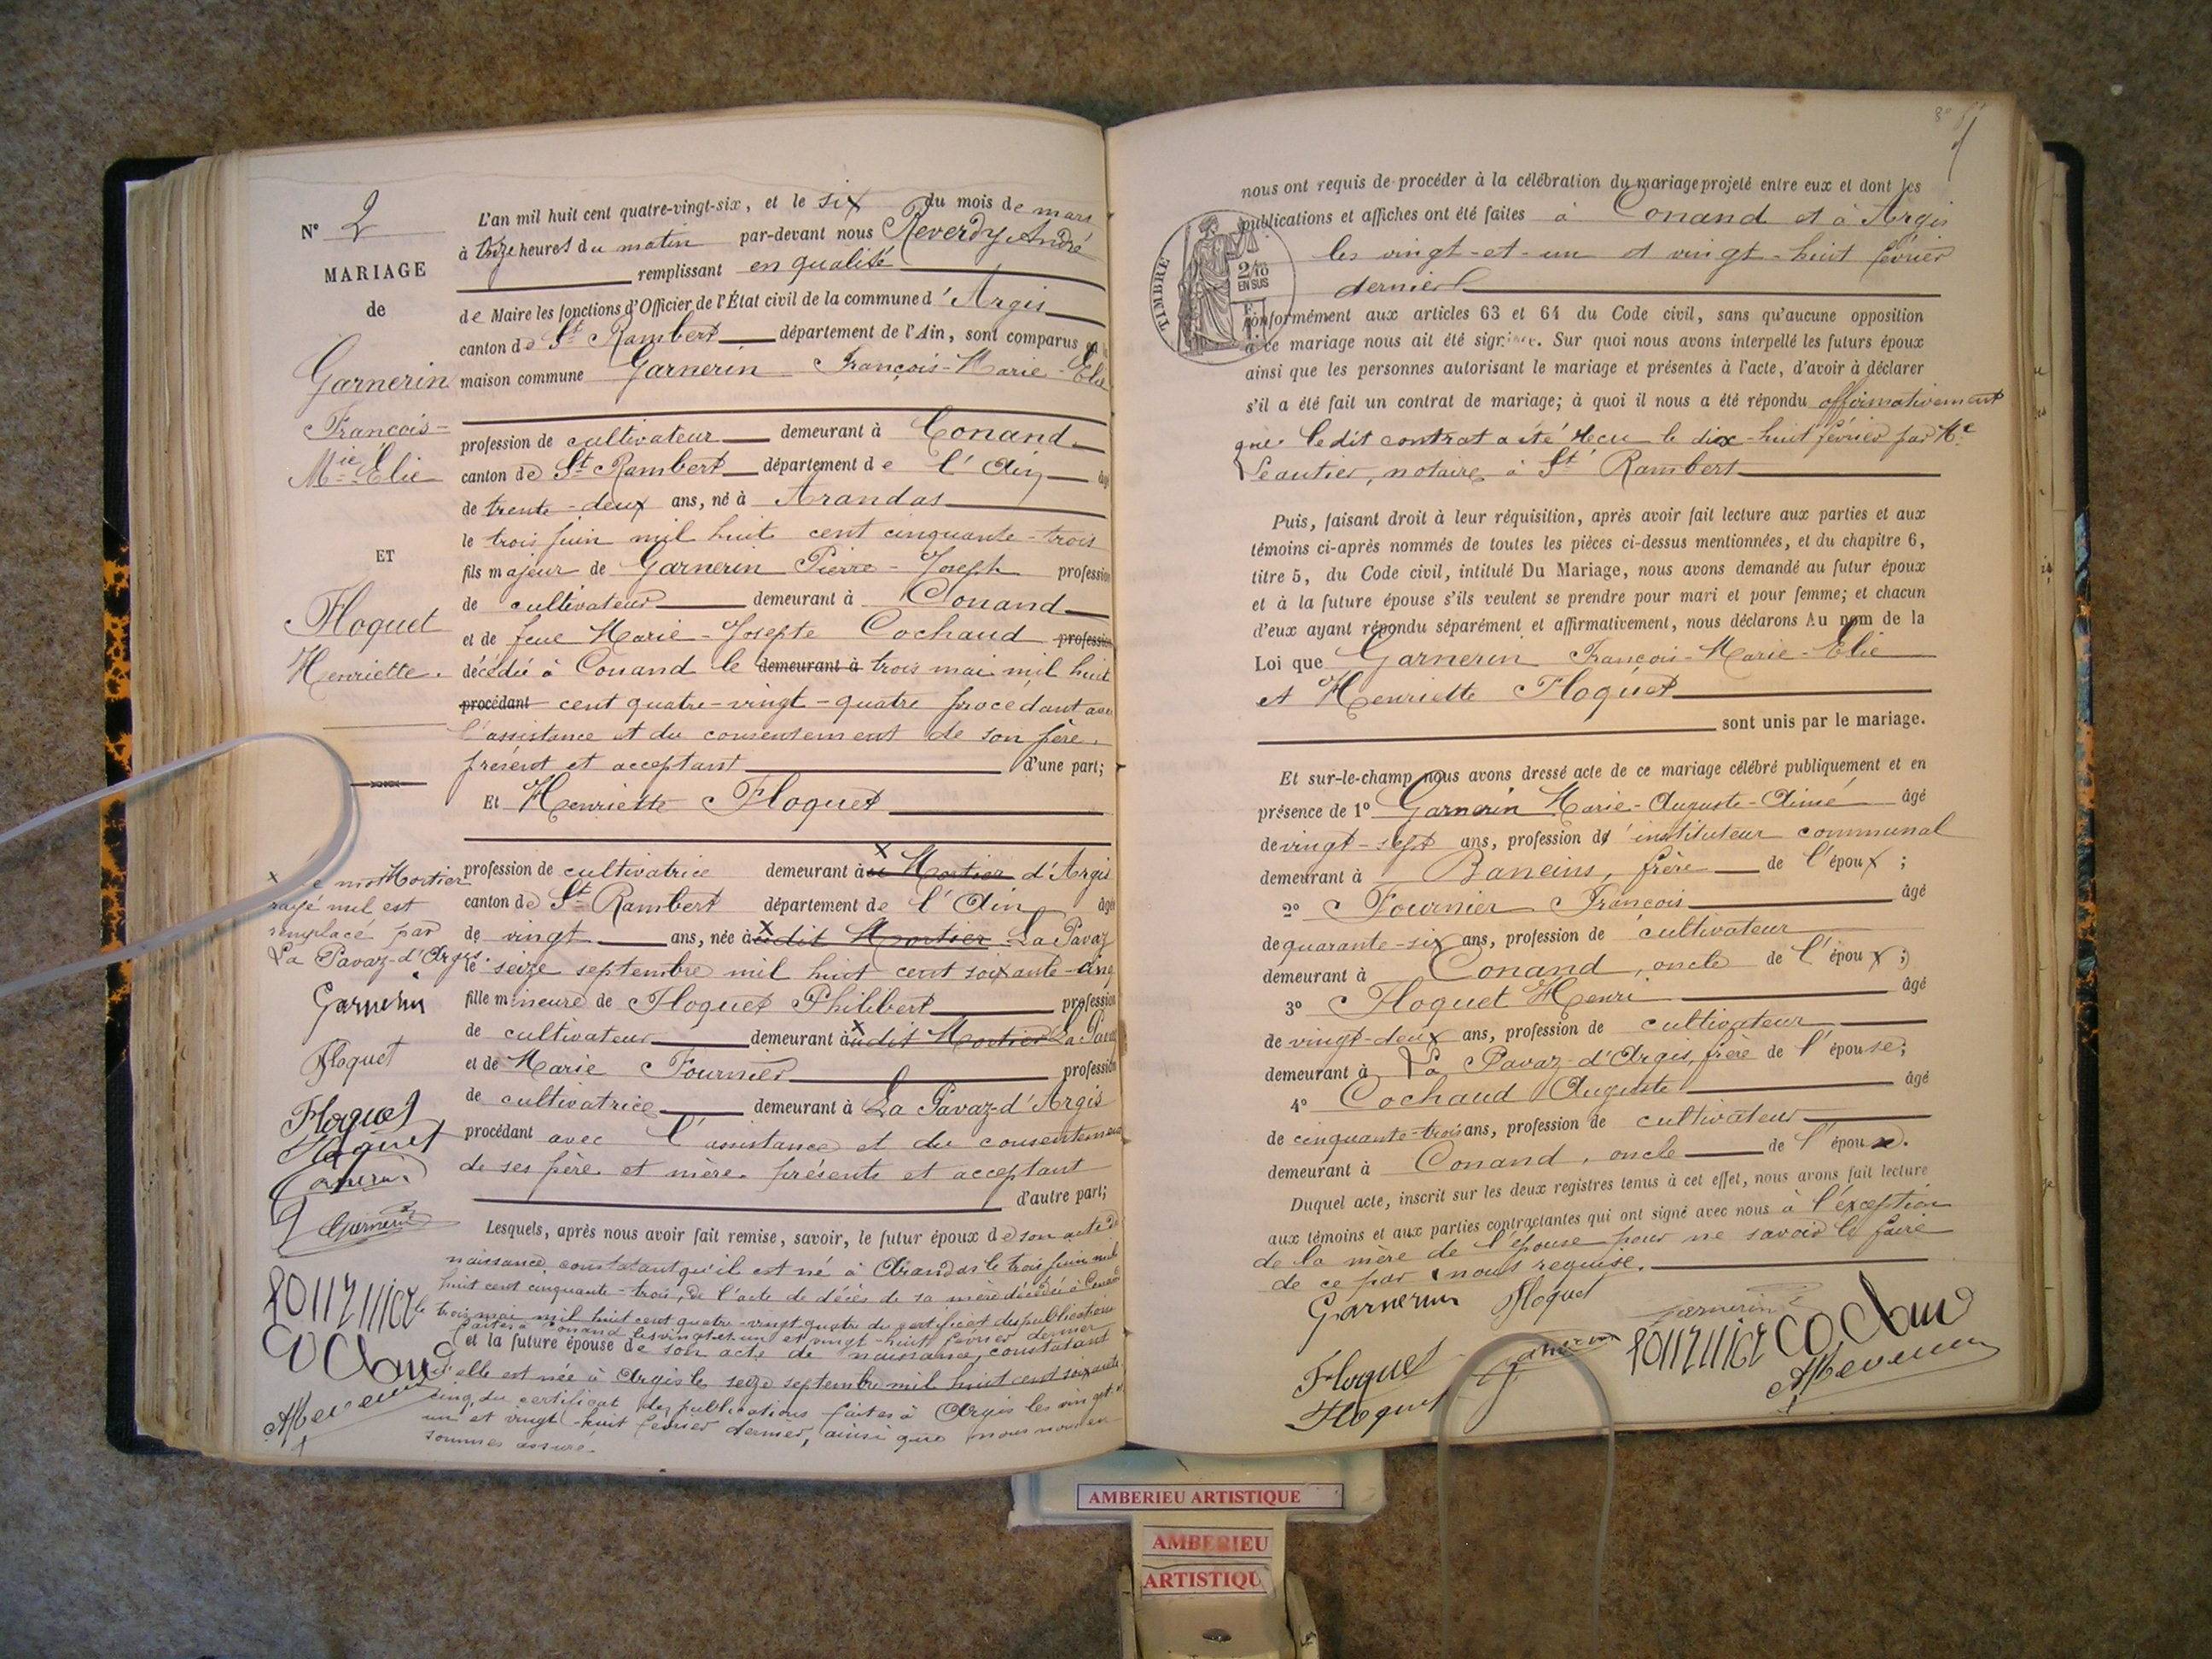 N° 2
MARIAGE
de
Garnerin
François-
Mie Elie
ET
Floquet
Henriette.
L'an mil huit cent quatre-vingt-six, et le six du mois de mars
à onze heures du matin par-devant nous Reverdy André
remplissant en qualité
de Maire les fonctions d'Officier de l'État civil de la commune d'Argis
canton de St Rambert département de l'Ain, sont comparus en la
maison commune Garnerin François-Marie-Elie
profession de cultivateur demeurant à Conand
canton de St Rambert département de l'Ain âgé
de trente-deux ans, né à Arandas
le trois juin mil huit cent cinquante-trois
fils majeur de Garnerin Pierre-Joseph profession
de cultivateur demeurant à Conand
et de feue Marie-Josepte Cochaud profession
décédée à Conand le demeurant à trois mai mil huit
procédant cent quatre-vingt-quatre procédant avec
l'assistance et du consentement de son père.
présent et acceptant d'une part;
Et Henriette Floquet
profession de cultivatrice demeurant à Mortier d'Argis
canton de St Rambert département de l'Ain âgée
de vingt ans, née à udit Mortier La Pavaz
le seize septembre mil huit cent soixante-cinq
fille mineure de Floquet Philibert profession
de cultivateur demeurant àudit Mortier La Pavaz
et de Marie Fournier profession
de cultivatrice demeurant à La Pavaz-d'Argis
procédant avec l'assistance et du consentement
de ses père et mère présents et acceptant
d'autre part;
x Le mot Mortier
rayé nul est
remplacé par
La Pavaz-d'Argis.
Garnerin
Floquet
Floquet
Floquet
Garnerin
Garnerin
Fournier
Cochaud
AReverdy
Lesquels, après nous avoir fait remise, savoir, le futur époux de son acte de
naissance, constatant qu'il est né à Arandas le trois juin mil
huit cent cinquante-trois, de l'acte de décès de sa mère décédée à Conand
le trois mai mil huit cent quatre-vingt-quatre du certificat des publications
faites à Conand les vingt-et-un et vingt-huit février dernier
et la future épouse de son acte de naissance, constatant
qu'elle est née à Argis le seize septembre mil huit cent soixante-
cinq, du certificat des publications faites à Argis les vingt-et-
un et vingt-huit février dernier, ainsi que nous nous en
sommes assuré.
nous ont requis de procéder à la célébration du mariage projeté entre eux et dont les
publications et affiches ont été faites à Conand et à Argis
les vingt-et-un et vingt-huit février
dernier
TIMBRE
2/10
EN SUS
conformément aux articles 63 et 64 du Code civil, sans qu'aucune opposition
à ce mariage nous ait été signifiée. Sur quoi nous avons interpellé les futurs époux
ainsi que les personnes autorisant le mariage et présentes à l'acte, d'avoir à déclarer
s'il a été fait un contrat de mariage; à quoi il nous a été répondu affirmativement
que le dit contrat a été recu le dix-huit février par Me
Leautier, notaire à St Rambert
Puis, faisant droit à leur réquisition, après avoir fait lecture aux parties et aux
témoins ci-après nommés de toutes les pièces ci-dessus mentionnées, et du chapitre 6,
titre 5, du Code civil, intitulé Du Mariage, nous avons demandé au futur époux
et à la future épouse s'ils veulent se prendre pour mari et pour femme; et chacun
d'eux ayant répondu séparément et affirmativement, nous déclarons Au nom de la
Loi que Garnerin François-Marie-Elie
et Henriette Floquet
sont unis par le mariage.
Et sur-le-champ nous avons dressé acte de ce mariage célébré publiquement et en
présence de 1° Garnerin Marie-Auguste-Aimé âgé
de vingt-sept ans, profession d'instituteur communal
demeurant à Baneins, frère de l'époux;
2° Fournier François âgé
de quarante-six ans, profession de cultivateur
demeurant à Conand, oncle de l'époux;
3° Floquet Henri âgé
de vingt-deux ans, profession de cultivateur
demeurant à La Pavaz-d'Argis, frère de l'épouse;
4° Cochaud Auguste âgé
de cinquante-trois ans, profession de cultivateur
demeurant à Conand, oncle de l'époux.
Duquel acte, inscrit sur les deux registres tenus à cet effet, nous avons fait lecture
aux témoins et aux parties contractantes qui ont signé avec nous à l'exception
de la mère de l'épouse pour ne savoir le faire
de ce par nous requise.
Garnerin Floquet Garnerin
Floquet Garnerin Fournier Cochaud
Floquet AReverdy
AMBERIEU ARTISTIQUE
AMBERIEU
ARTISTIQU